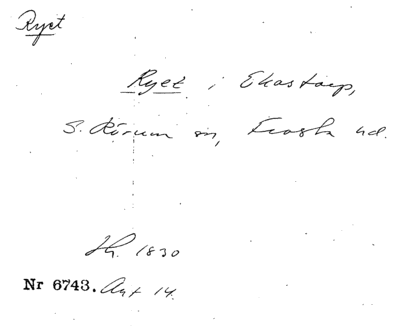 Ryet
Ryet i Ekastorp,
S. Rörum sn, Frosta hd.
Jh. 1830
Nr 6743. Ant 14.